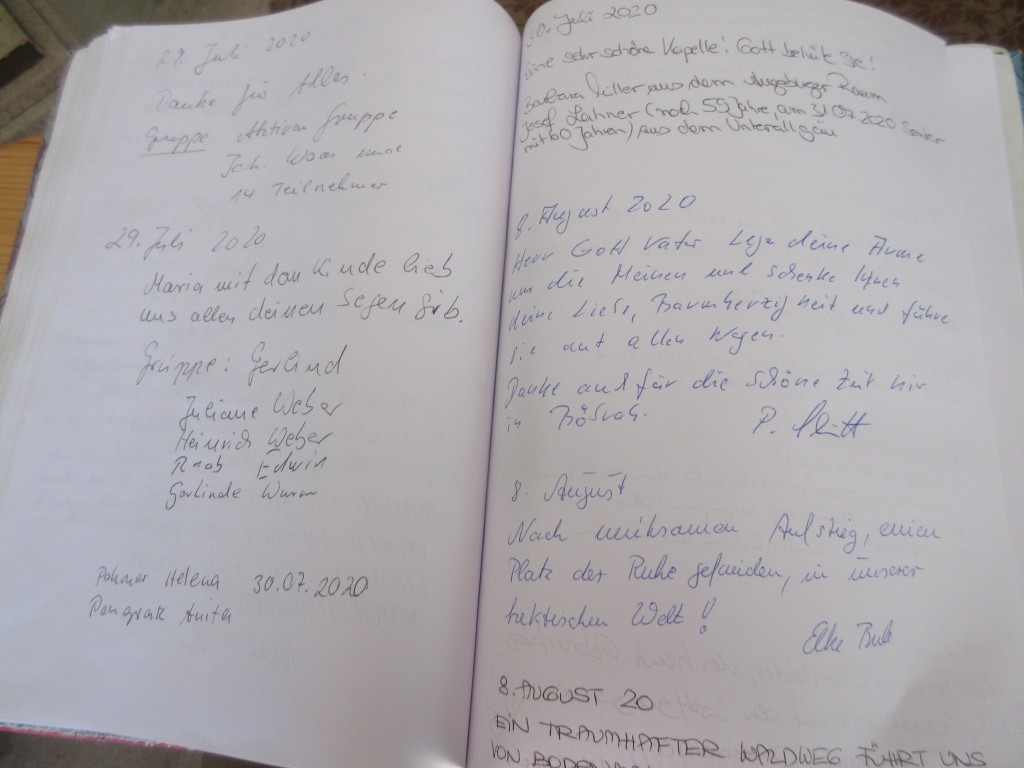 29. Juli 2020
Danke für Alles.
Gruppe Aktiven Gruppe
Ich. und
14 Teilnehmer
29. Juli 2020
Maria mit dem Kinde lieb
uns allen deinen Segen gib.
Gruppe: Gerlind
Juliane Weber
Heinrich Weber
Raab Edwin
Gerlinde Wurm
Helena 30.07.2020
Anita
30. Juli 2020
Eine sehr schöne Kapelle! Gott behüte Sie!
Barbara aus dem Augsburger Raum
Josef Lahner (noch 59 Jahre, am 31.07.2020
mit 60 Jahren) aus dem Unterallgäu
8. August 2020
Herr Gott Vater Lege deine Arme
um die Meinen und schenke Ihnen
deine Liebe, Barmherzigkeit und führe
sie auf allen Wegen.
Danke auch für die schöne Zeit hir
in
P.
8. August
Nach mühsamen Aufstieg, einen
Platz der Ruhe gefunden, in unserer
hektischen Welt!
Elke
8. AUGUST 20
EIN TRAUMHAFTER WALDWEG FÜHRT UNS
VON